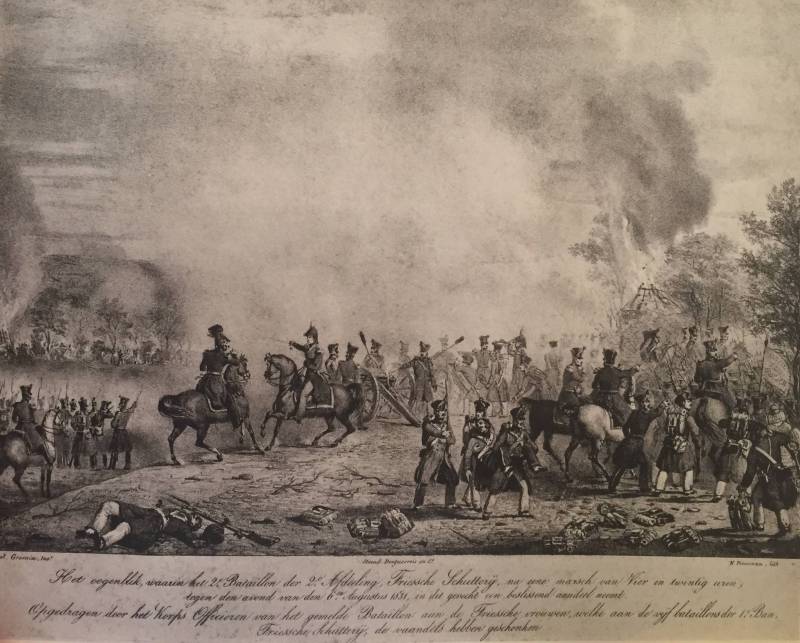 Steend. Desguerrois en Cº.
Het oogenblik, waarin het 2e Bataillon der 2e Afdeeling, Friessche Schutterij, na eene marsch van Vier en twintig uren,
tegen den avond van den 6den Augustus 1831, in dit gevecht een beslissend aandeel neemt.
Opgedragen door het Korps Officieren van het gemelde Bataillon aan de Friessche vrouwen, welke aan de vijf bataillons der 1e Ban,
Friessche Schutterij, de vaandels hebben geschonken